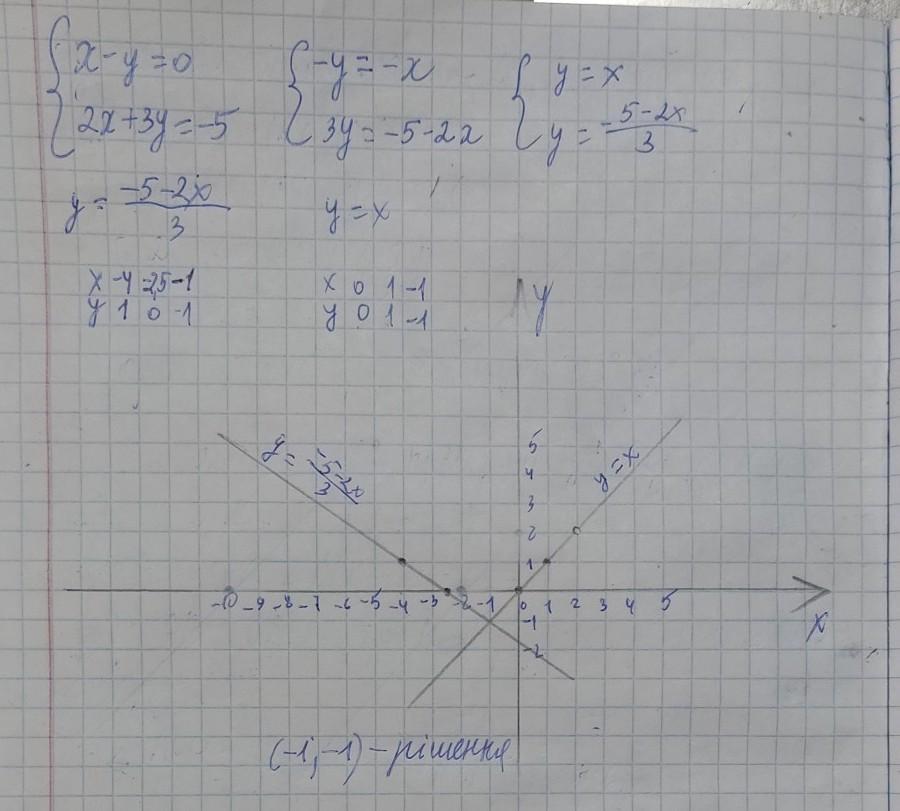 {x-y=0 {-y=-x {y=x
{2x+3y=-5 {3y=-5-2x {y=-5-2x/3
y=-5-2x/3 y=x
x -4 -2,5 -1 x 0 1 -1
y 1 0 -1 y 0 1 -1
y
y=-5-2x/3 y=x
5
4
3
2
1
-10 -9 -8 -7 -6 -5 -4 -3 -2 -1 0 1 2 3 4 5
x
-1
-2
(-1;-1)-рішення